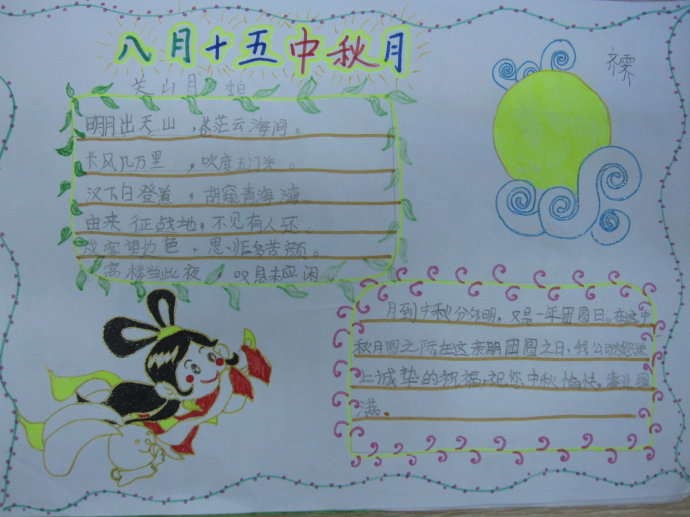 八月十五中秋月
关山月
明月出天山，苍茫云海间。
长风几万里，吹度玉门关。
汉下白登道，胡窥青海湾
由来征战地，不见有人还
戍客望边色，思归多苦颜。
高楼当此夜，叹息未应闲
月到中秋分外明，又是一年团圆日。在这中
秋月圆之际在这亲朋团圆之日，我公司
上诚挚的祝福，祝您中秋愉快，事业
满。